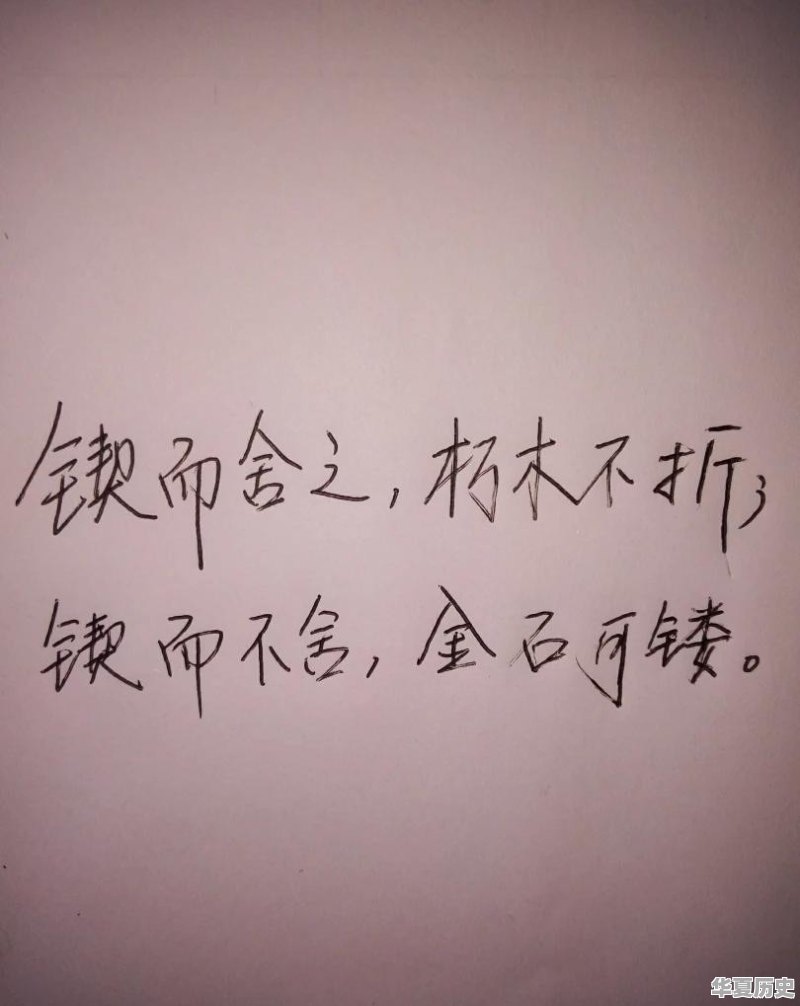 锲而舍之,朽木不折;
锲而不舍,金石可镂。
华夏历史